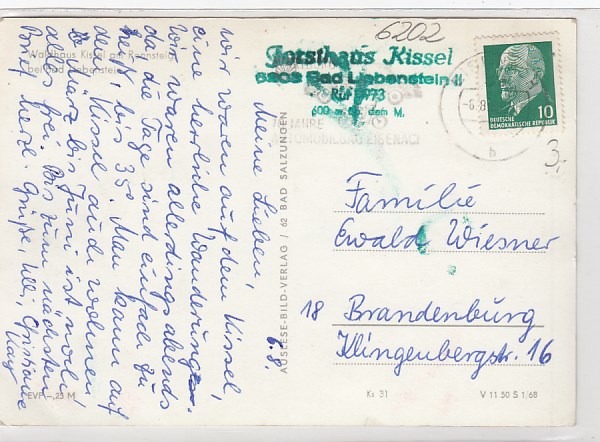 6202
Forsthaus Kissel
6808 Bad Liebenstein II
Ruf 3993
600 m üb. dem M.
JAHRE
AUTOMOBILBAU EISENACH
10
DEUTSCHE
DEMOKRATISCHE REPUBLIK
b
3,-
Waldhaus Kissel am Rennsteig
bei Bad Liebenstein
6.8
Meine Lieben,
wir waren auf dem Kissel,
eine herrliche Wanderung.
Wir waren allerdings abends
da, die Tage sind einfach zu
heiß, bis 35°. Man kann auf
dem "Kissel" auch wohnen.
Von März bis Juni ist wohl
alles frei. Bis zum nächsten
Brief herzl. Grüße, Christiane
AUSLESE-BILD-VERLAG / 62 BAD SALZUNGEN
Familie
Ewald Wiesner
18 Brandenburg
Klingenbergstr. 16
EVP -,25 M
Ks 31
V 11 50 S 1/68